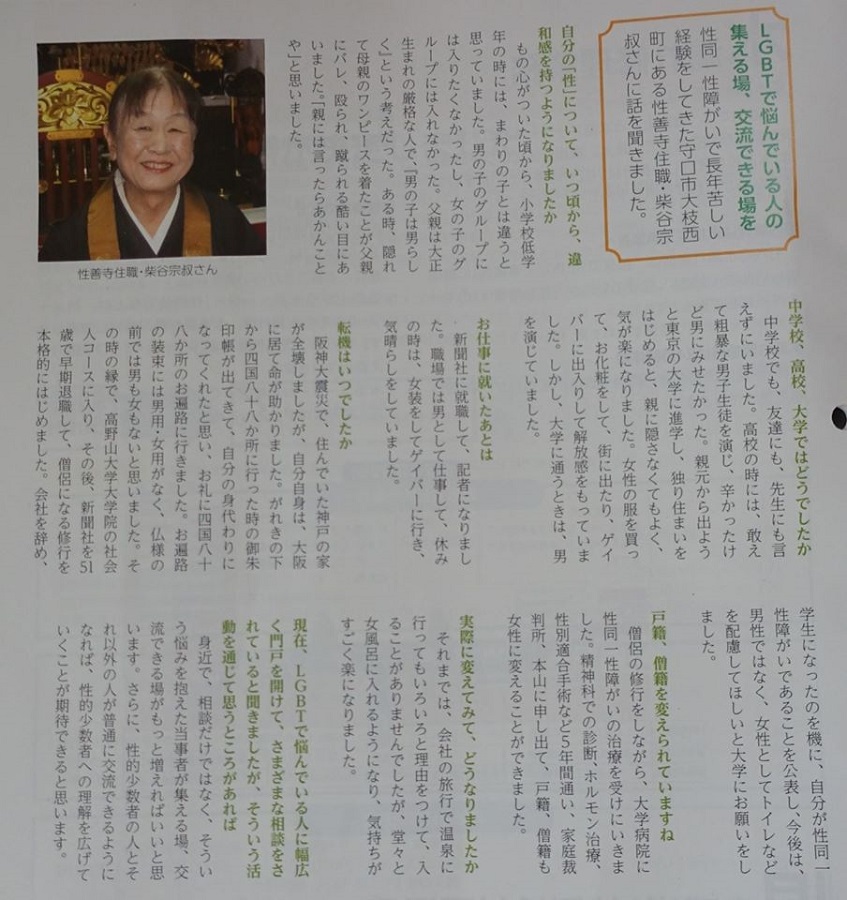 LGBTで悩んでいる人の
集える場、交流できる場を
性同一性障がいで長年苦しい
経験をしてきた守口市大枝西
町にある性善寺住職・柴谷宗
叔さんに話を聞きました。
自分の「性」について、いつ頃から、違
和感を持つようになりましたか
もの心がついた頃から、小学校低学
年の時には、まわりの子とは違うと
思っていました。男の子のグループに
は入りたくなかったし、女の子のグ
ループには入れなかった。父親は大正
生まれの厳格な人で、「男の子は男らし
く」という考えだった。ある時、隠れ
て母親のワンピースを着たことが父親
にバレ、殴られ、蹴られる酷い目にあ
いました。「親には言ったらあかんこと
や」と思いました。
性善寺住職・柴谷宗叔さん
中学校、高校、大学ではどうでしたか
中学校でも、友達にも、先生にも言
えずにいました。高校の時には、敢え
て粗暴な男子生徒を演じ、辛かったけ
ど男にみせたかった。親元から出よう
と東京の大学に進学し、独り住まいを
はじめると、親に隠さなくてもよく、
気が楽になりました。女性の服を買っ
て、お化粧をして、街に出たり、ゲイ
バーに出入りして解放感をもっていま
した。しかし、大学に通うときは、男
を演じていました。
お仕事に就いたあとは
新聞社に就職して、記者になりまし
た。職場では男として仕事して、休み
の時は、女装をしてゲイバーに行き、
気晴らしをしていました。
転機はいつでしたか
阪神大震災で、住んでいた神戸の家
が全壊しましたが、自分自身は、大阪
に居て命が助かりました。がれきの下
から四国八十八か所に行った時の御朱
印帳が出てきて、自分の身代わりに
なってくれたと思い、お礼に四国八十
八か所のお遍路に行きました。お遍路
の装束には男用・女用がなく、仏様の
前では男も女もないと思いました。そ
の時の縁で、高野山大学大学院の社会
人コースに入り、その後、新聞社を51
歳で早期退職して、僧侶になる修行を
本格的にはじめました。会社を辞め、
学生になったのを機に、自分が性同一
性障がいであることを公表し、今後は、
男性ではなく、女性としてトイレなど
を配慮してほしいと大学にお願いをし
ました。
戸籍、僧籍を変えられていますね
僧侶の修行をしながら、大学病院に
性同一性障がいの治療を受けにいきま
した。精神科での診断、ホルモン治療、
性別適合手術など5年間通い、家庭裁
判所、本山に申し出て、戸籍、僧籍も
女性に変えることができました。
実際に変えてみて、どうなりましたか
それまでは、会社の旅行で温泉に
行ってもいろいろと理由をつけて、入
ることがありませんでしたが、堂々と
女風呂に入れるようになり、気持ちが
すごく楽になりました。
現在、LGBTで悩んでいる人に幅広
く門戸を開けて、さまざまな相談をさ
れていると聞きましたが、そういう活
動を通じて思うところがあれば
身近で、相談だけではなく、そうい
う悩みを抱えた当事者が集える場、交
流できる場がもっと増えればいいと思
います。さらに、性的少数者の人とそ
れ以外の人が普通に交流できるように
なれば、性的少数者への理解を広げて
いくことが期待できると思います。